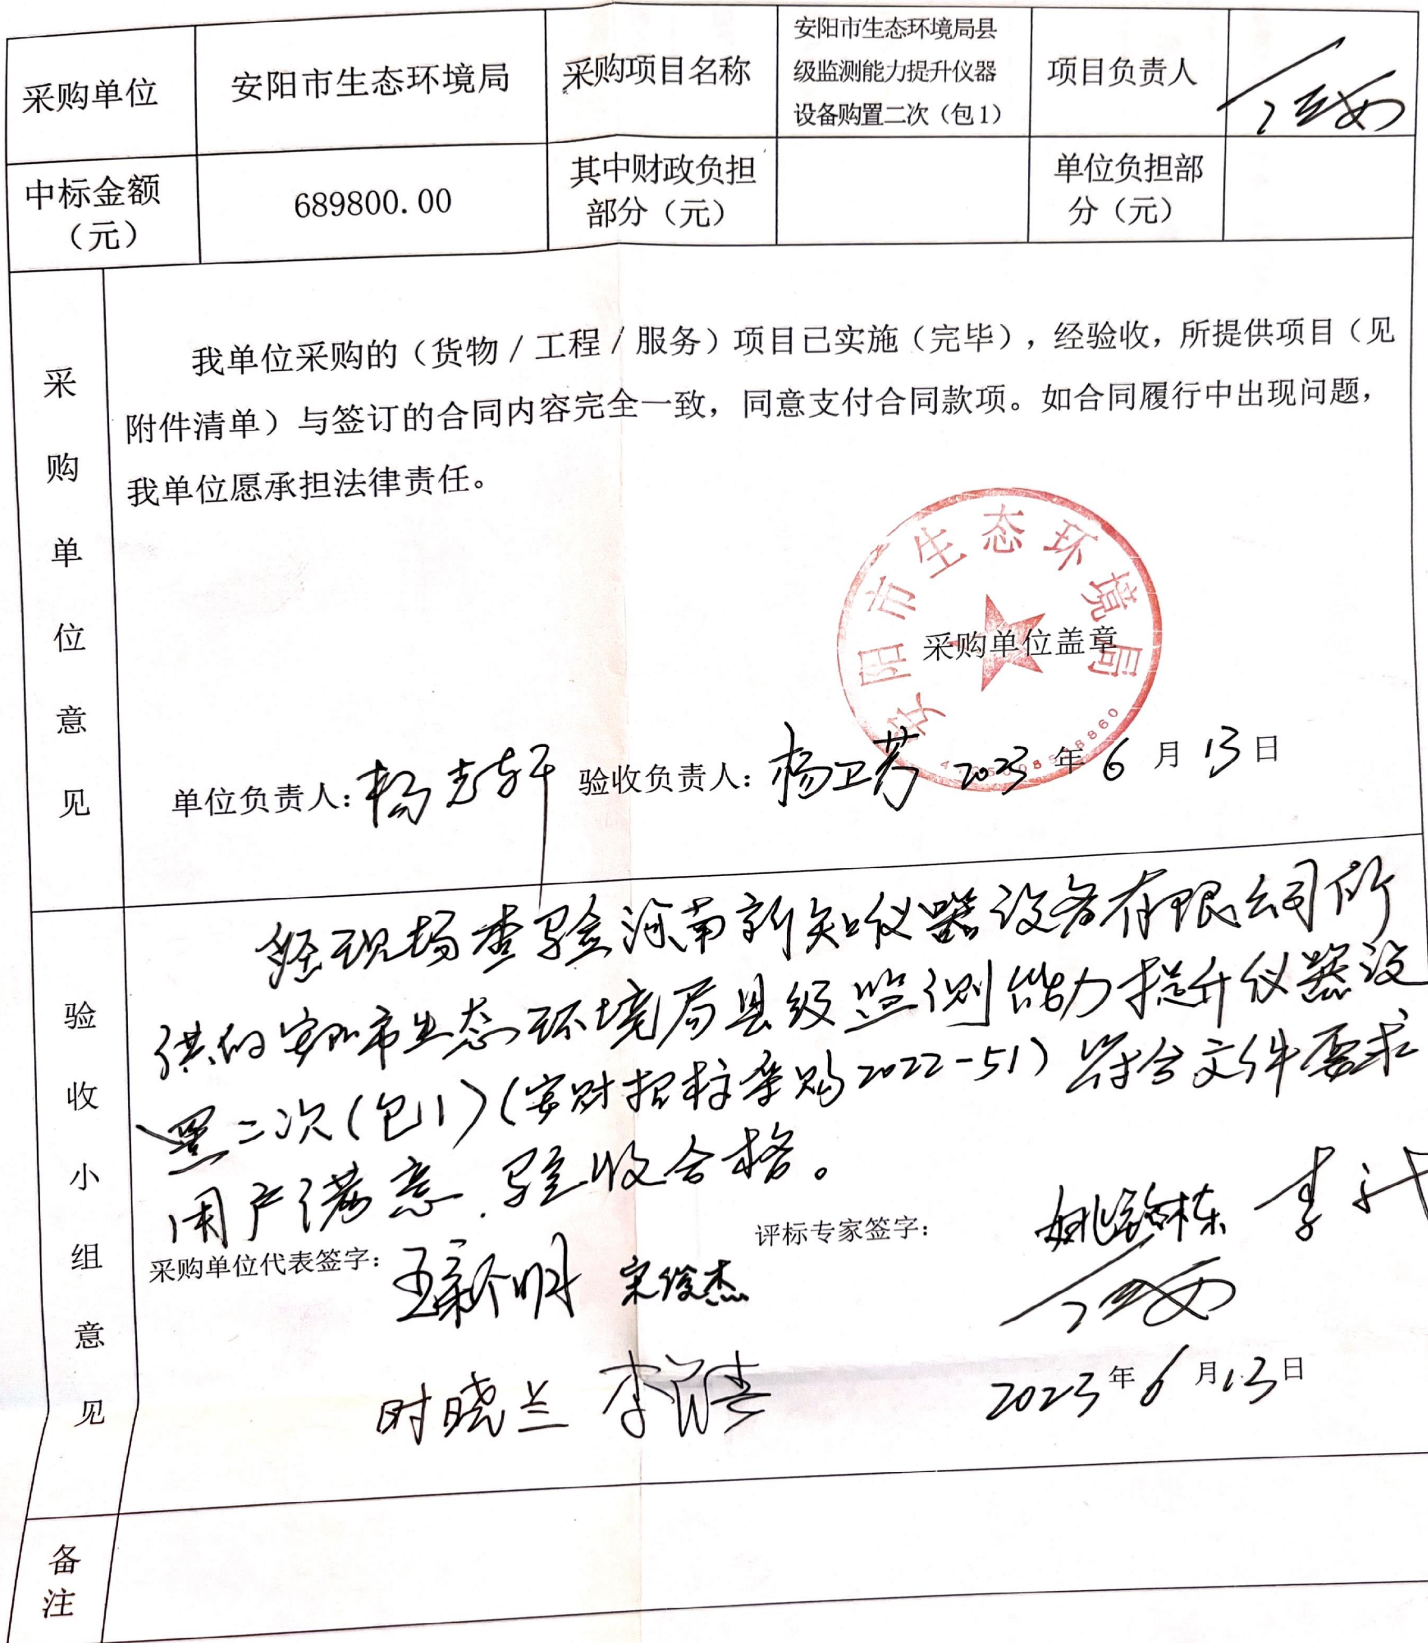 采购单位
安阳市生态环境局
采购项目名称
安阳市生态环境局县
级监测能力提升仪器
设备购置二次（包1）
项目负责人
中标金额
（元）
689800.00
其中财政负担
部分（元）
单位负担部
分（元）
采购单位意见
我单位采购的（货物/工程/服务）项目已实施（完毕），经验收，所提供项目（见
附件清单）与签订的合同内容完全一致，同意支付合同款项。如合同履行中出现问题，
我单位愿承担法律责任。
安阳市生态环境局
采购单位盖章
单位负责人：杨志轩 验收负责人：杨卫芳 2023年6月13日
验收小组意见
经现场查验河南新知仪器设备有限公司所
供的安阳市生态环境局县级监测能力提升仪器设
置二次(包1)(安财招标采购2022-51)符合文件要求
用户满意、验收合格。
采购单位代表签字：王新明 宋俊杰
时晓兰
评标专家签字：
2023年6月13日
备注